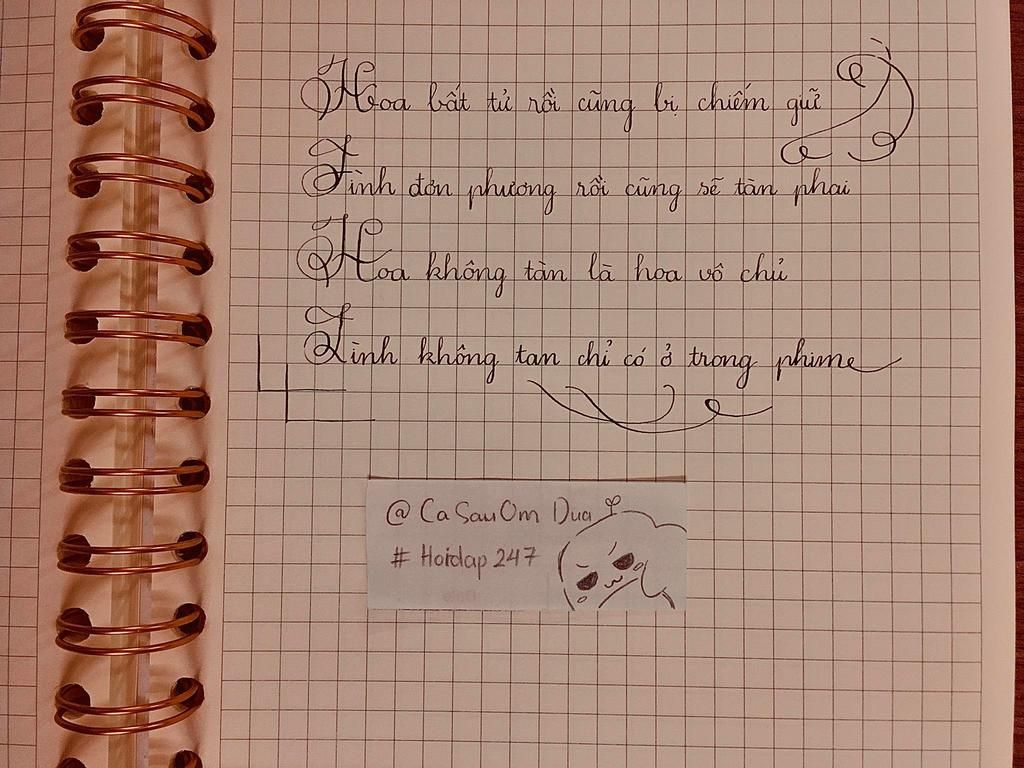 Hoa bất tử rồi cũng bị chiếm giữ
Tình đơn phương rồi cũng sẽ tàn phai
Hoa không tàn là hoa vô chủ
Tình không tan chỉ có ở trong phime
@CaSauOm Dua
#Hoidap247